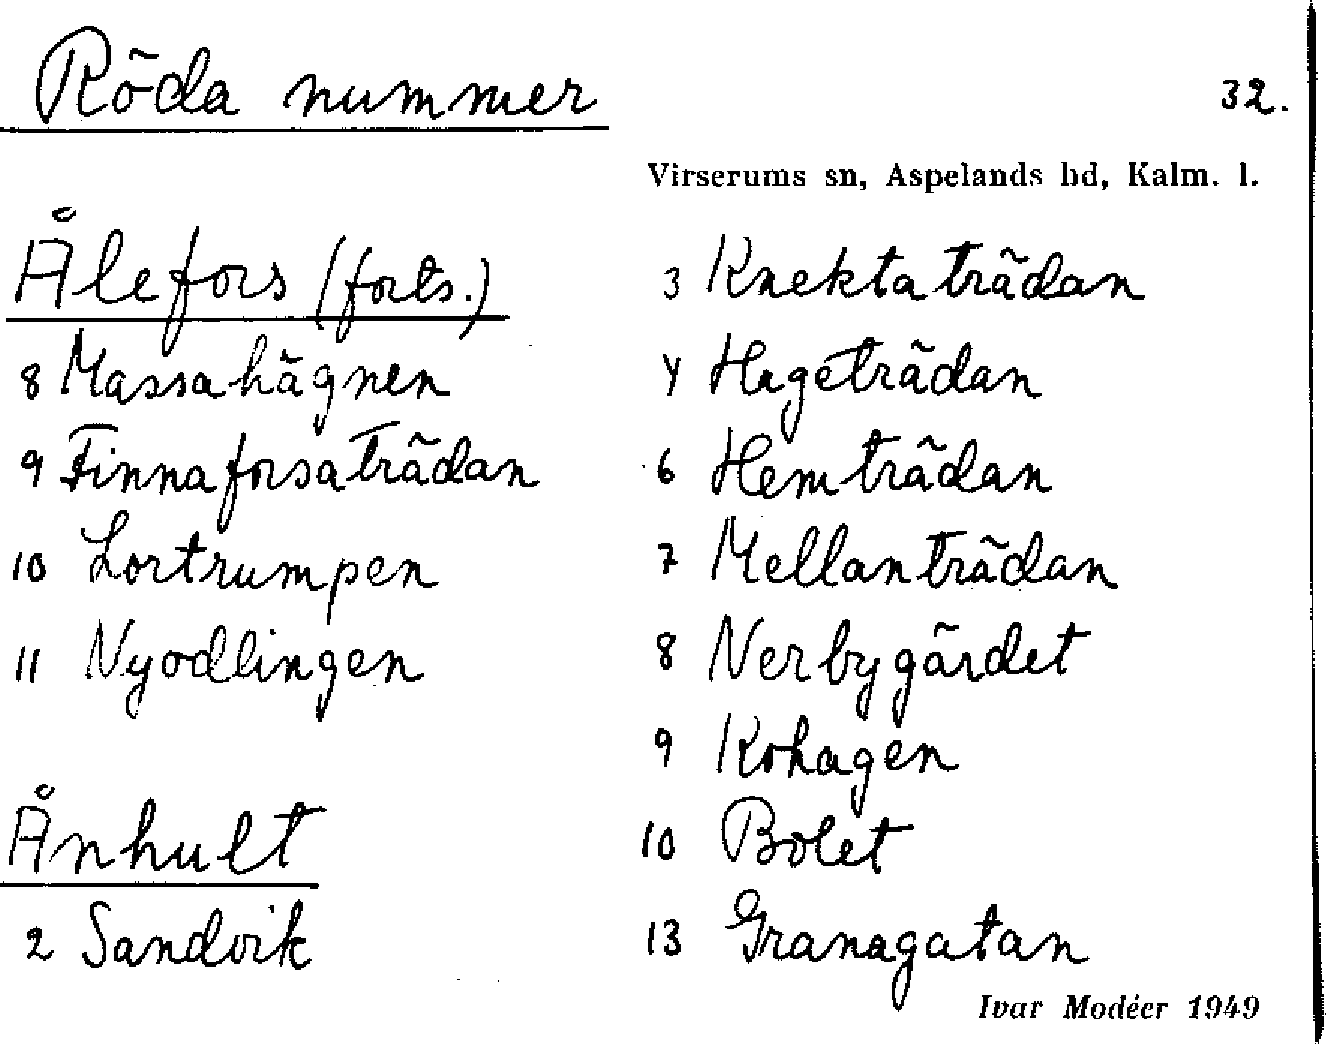 Röda nummer
32.
Virserums sn, Aspelands hd, Kalm. l.
Ålefors (forts.)
8 Massahägnen
9 Finnaforsaträdan
10 Lortrumpen
11 Nyodlingen
Ånhult
2 Sandvik
3 Knektaträdan
4 Hageträdan
6 Hemträdan
7 Mellanträdan
8 Nerbygärdet
9 Kohagen
10 Bolet
13 Granagatan
Ivar Modéer 1949